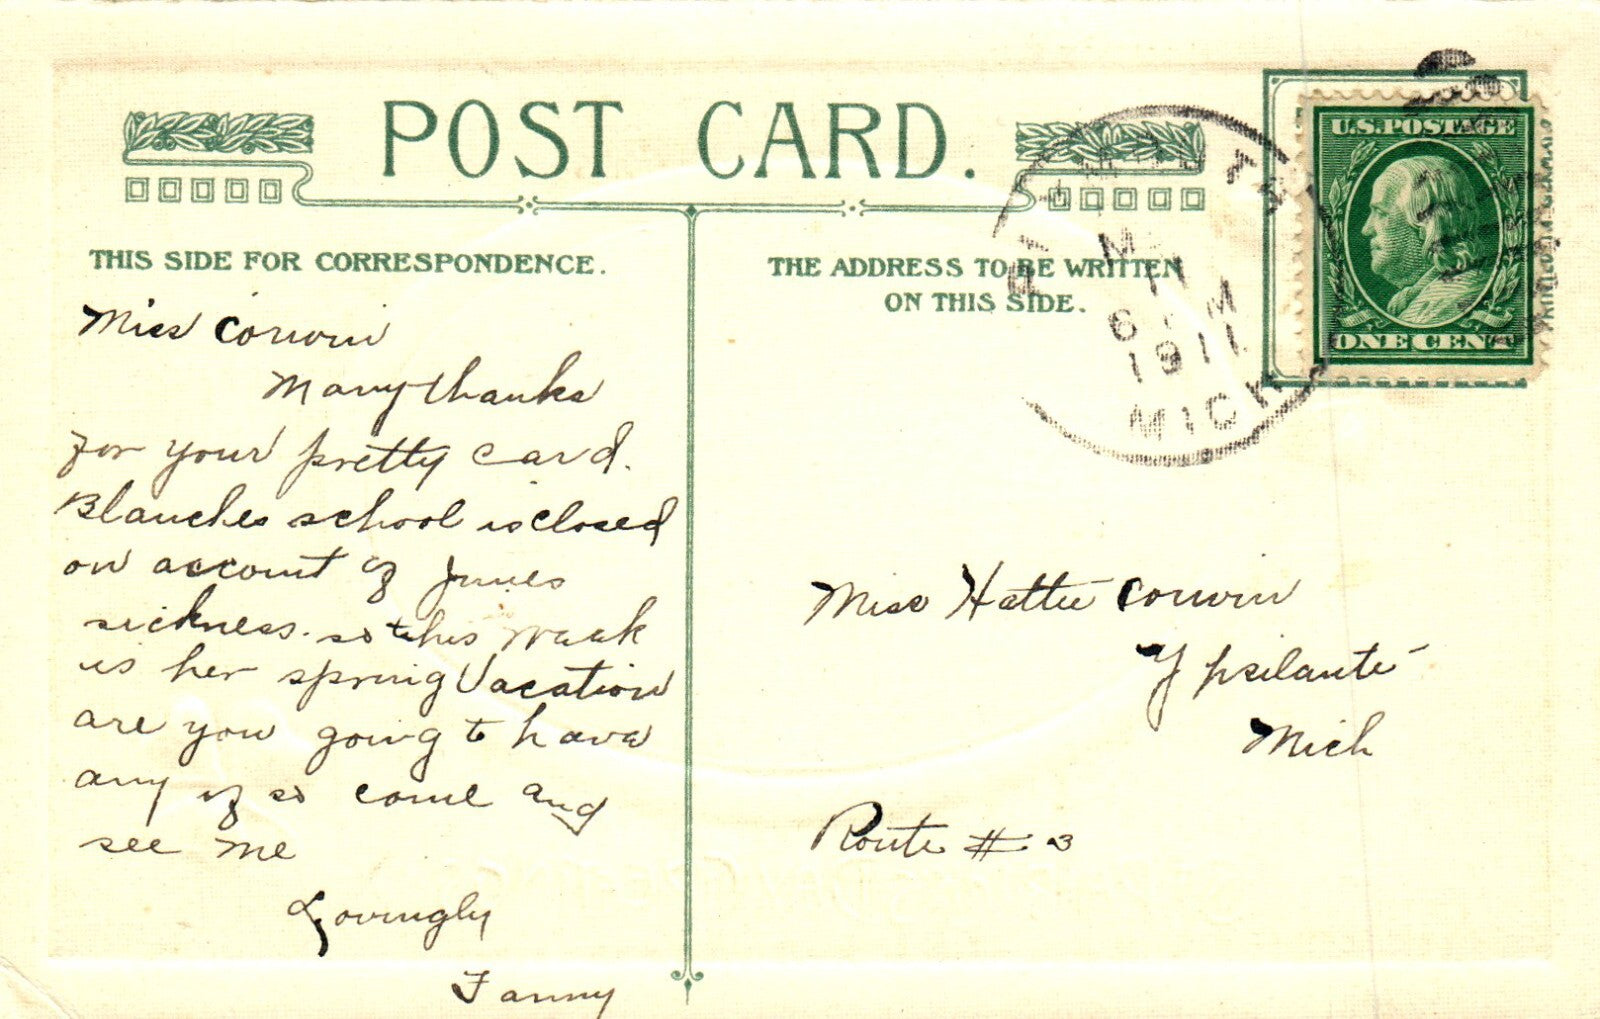 POST CARD.
THIS SIDE FOR CORRESPONDENCE.
Miss Corwin
Many thanks
for your pretty card.
Blanches school is closed
on account of
sickness. so this week
is her spring Vacation
are you going to have
any if so come and
see me
Lovingly
Fanny
THE ADDRESS TO BE WRITTEN
ON THIS SIDE.
M
11
6 M
1911
MICH
U.S. POSTAGE
ONE CENT
Miss Hattie Corwin
Ypsilante
Mich
Route # 3